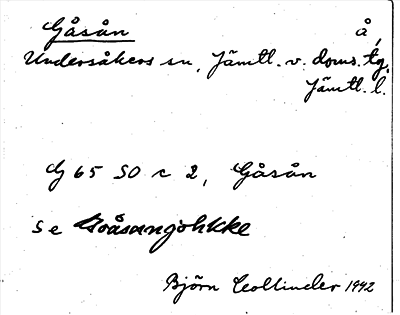 Gåsån å,
Undersåkers sn, Jämtl. v. doms. tg.
Jämtl. l.
G 65 SO c 2, Gåsån
Se Goåsangjohkke
Björn Collinder 1942